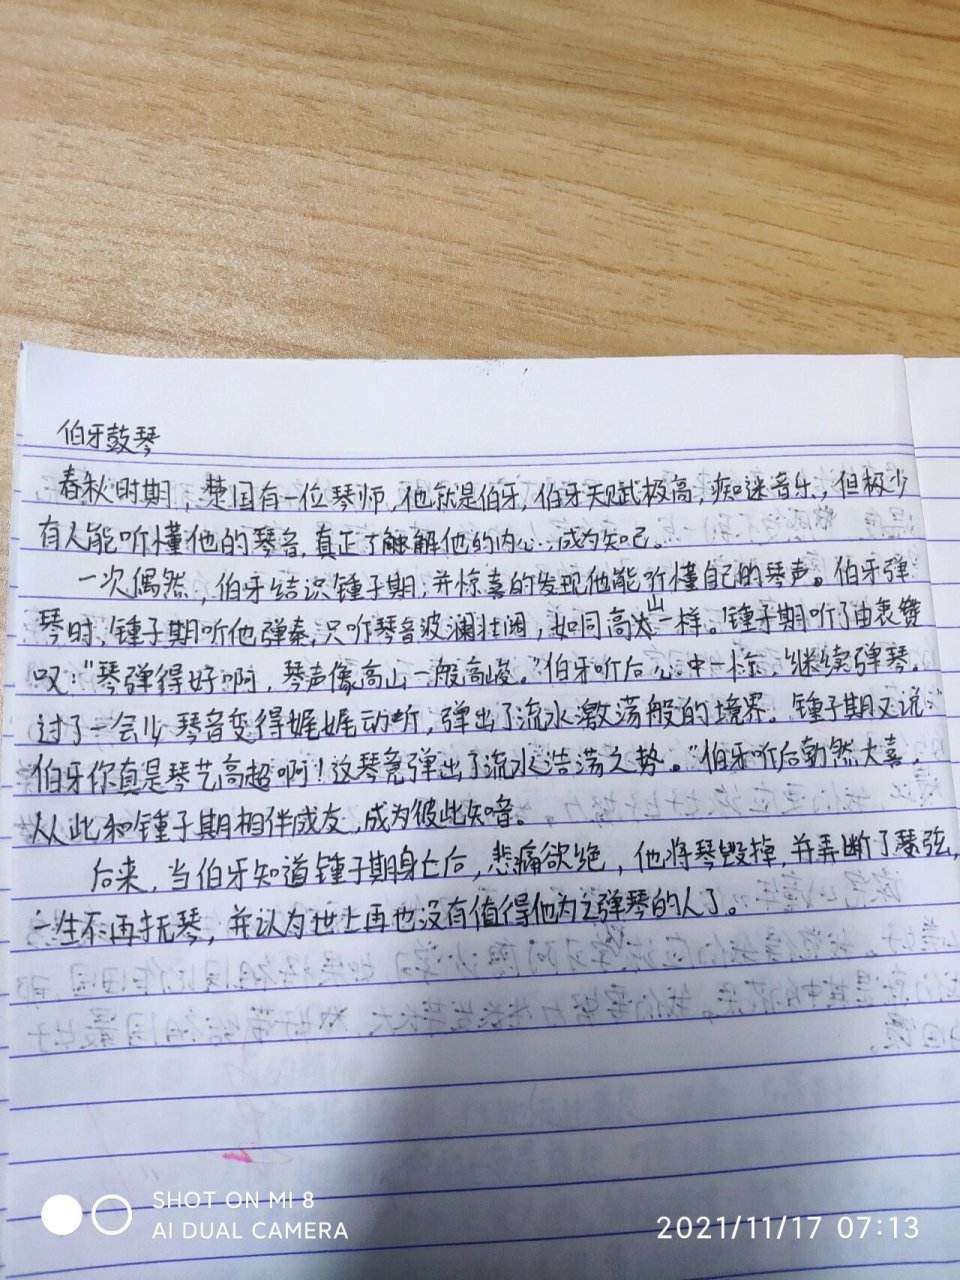 伯牙鼓琴
春秋时期，楚国有一位琴师，他就是伯牙，伯牙天赋极高，痴迷音乐，但极少
有人能听懂他的琴音，真正了触解他的内心，成为知己。
一次偶然，伯牙结识锺子期，并惊喜的发现他能听懂自己的琴声。伯牙弹
琴时，锺子期听他弹奏，只听琴音波澜壮阔，如同高山一样。锺子期听了由衷赞
叹：“琴弹得好啊，琴声像高山一般高峻。”伯牙听后心中一惊，继续弹琴。
过了一会儿琴音变得娓娓动听，弹出了流水激荡般的境界。锺子期又说：“
伯牙你真是琴艺高超啊！这琴竟弹出了流水浩荡之势。”伯牙听后勃然大喜，
从此和锺子期相伴成友，成为彼此知音。
后来，当伯牙知道锺子期身亡后，悲痛欲绝，他将琴毁掉，并弄断了琴弦，
一生不再抚琴，并认为世上再也没有值得他为之弹琴的人了。
SHOT ON MI 8
AI DUAL CAMERA
2021/11/17 07:13